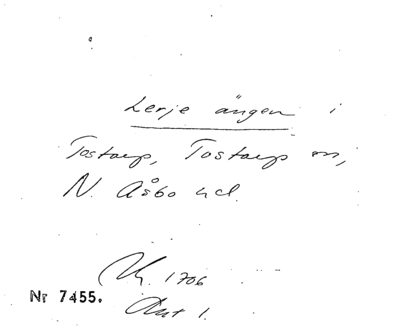 Lerje ängen i
Tostarp, Tostarp sn,
N. Åsbo hd.
1706
Nr 7455.
Akt 1.